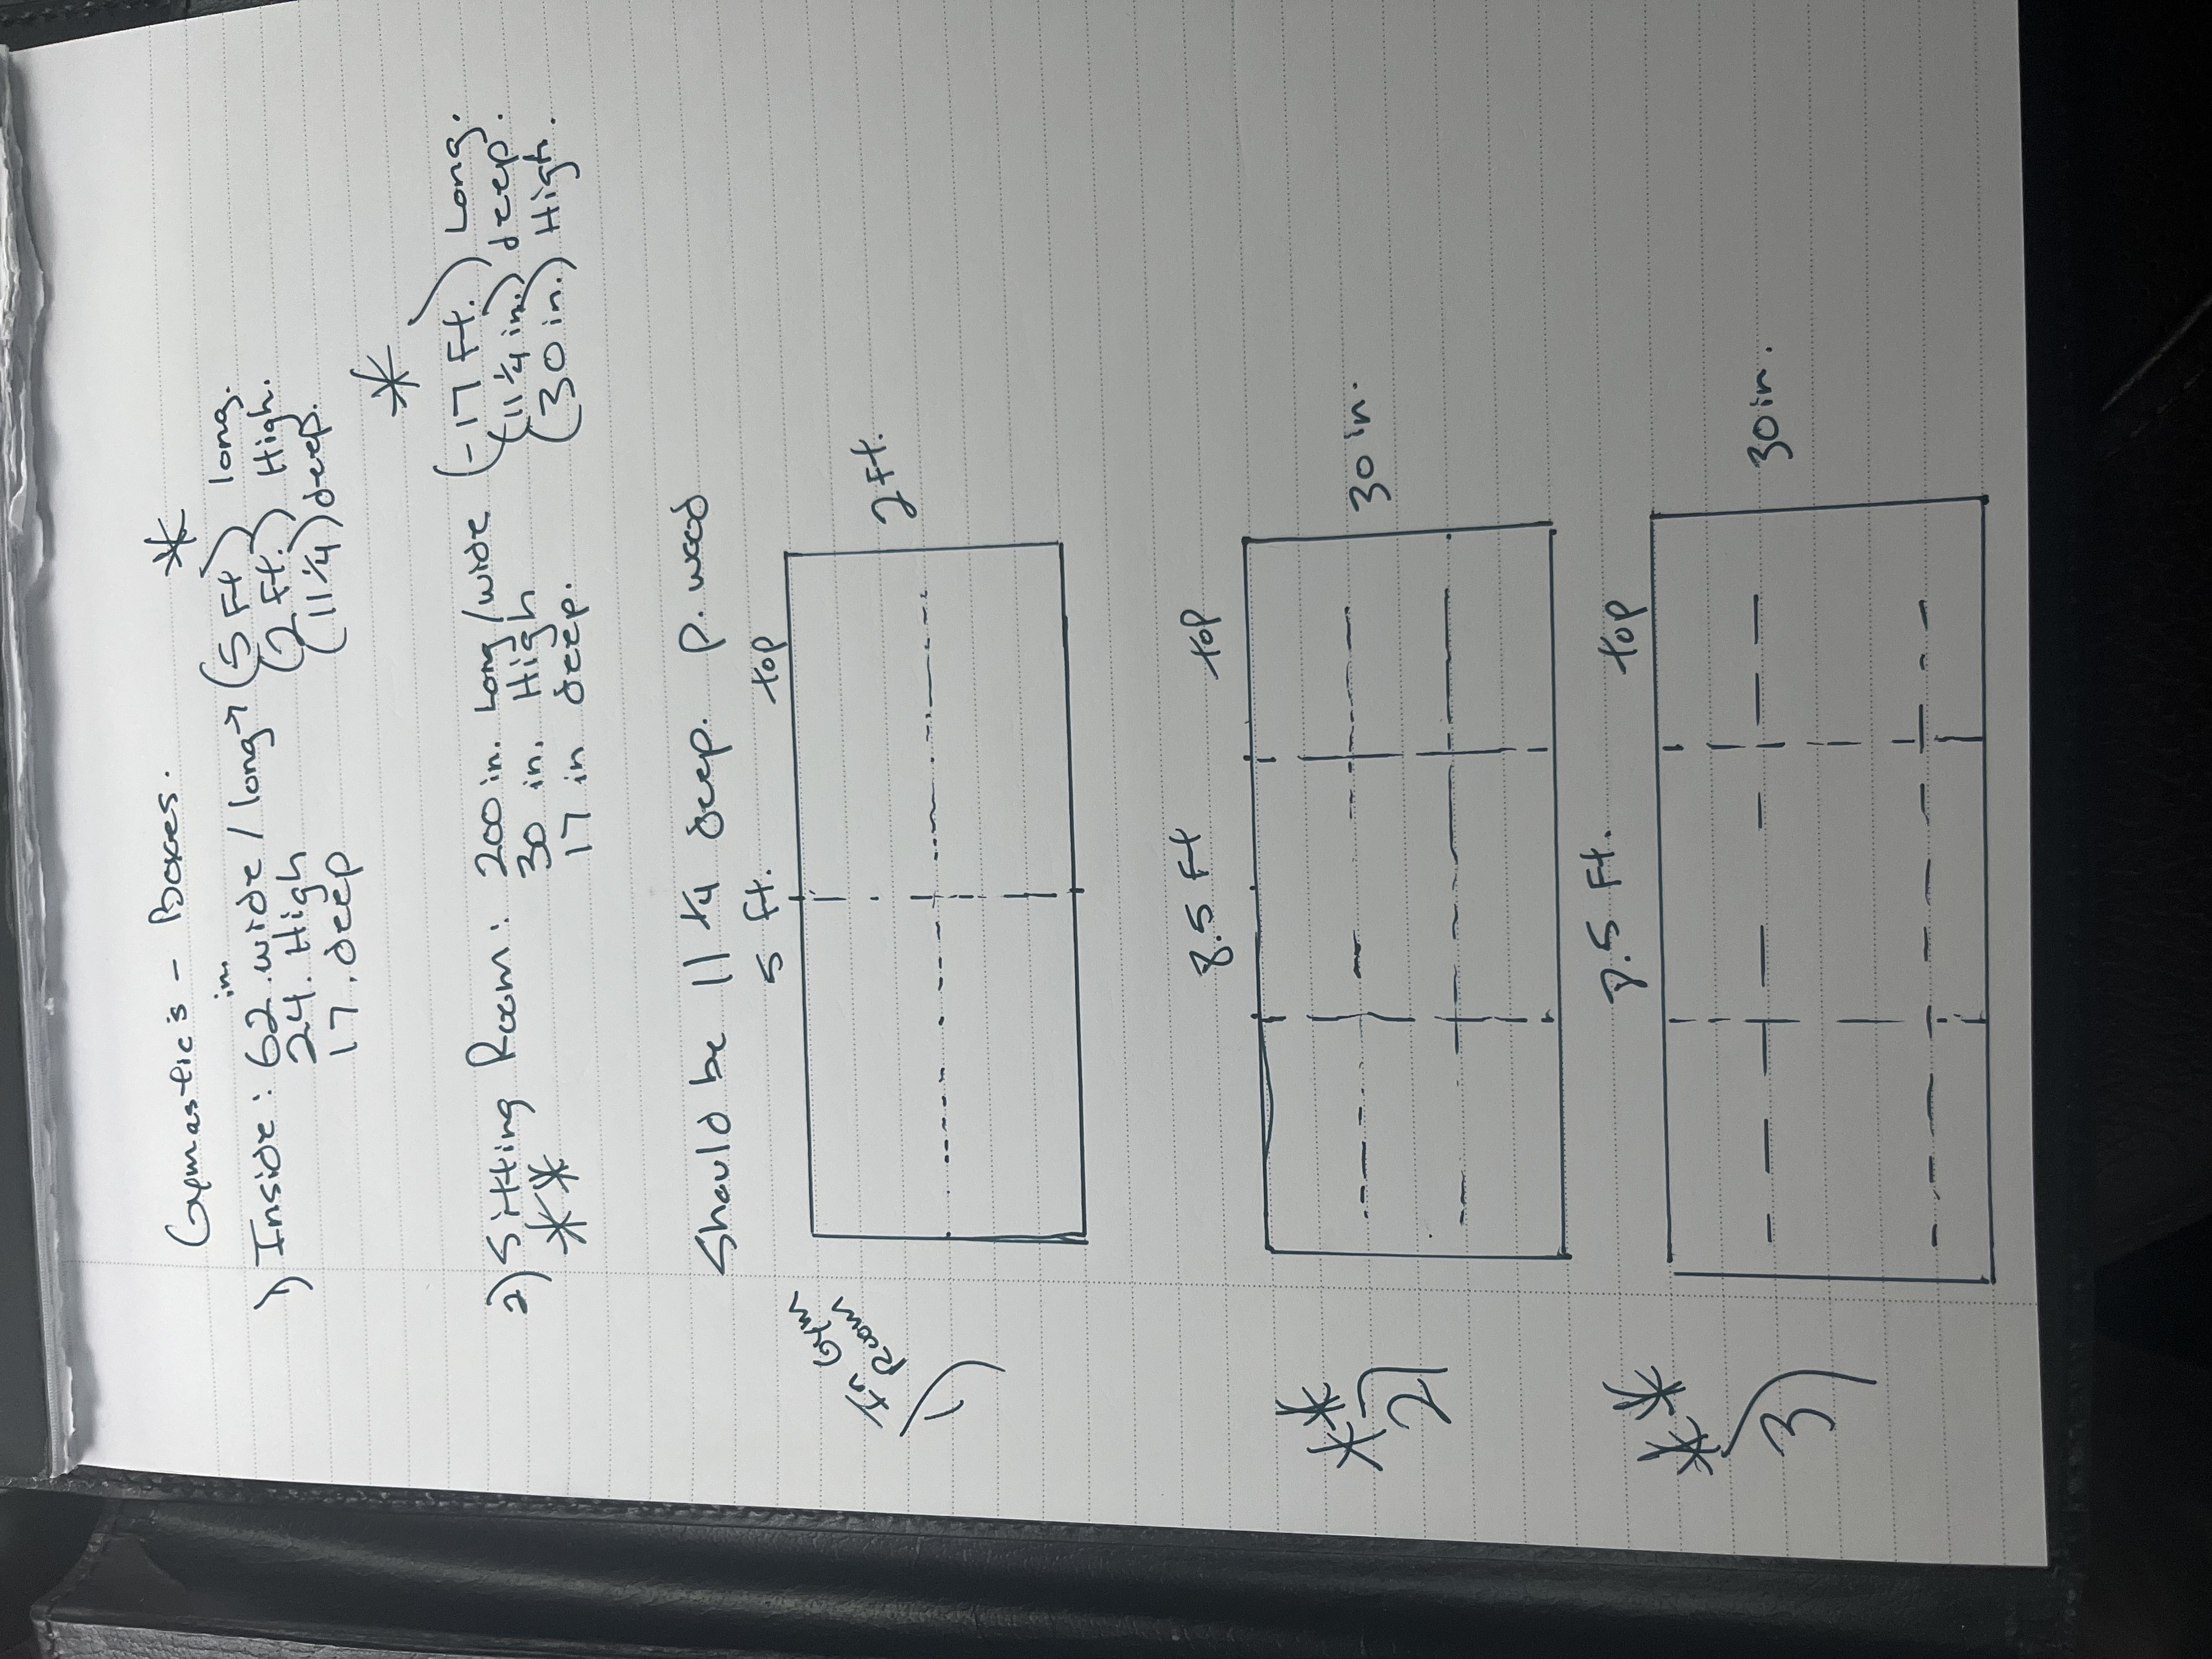 Gymnastics - Boxes.
*
1) Inside: 62 in. wide / long → (5 Ft) long.
24. High (2 Ft.) High.
17. deep (11 1/4) deep.
*
2) Sitting Room: 200 in. Long/wide (-17 Ft.) Long.
** 30 in. High (11 1/4 in.) deep.
17 in deep. (30 in.) High.
Should be 11 1/4 deep. p. wood
5 ft. top
In Gym Room
1) 2 Ft.
8.5 Ft top
** 2) 30 in.
8.5 Ft. top
** 3) 30 in.